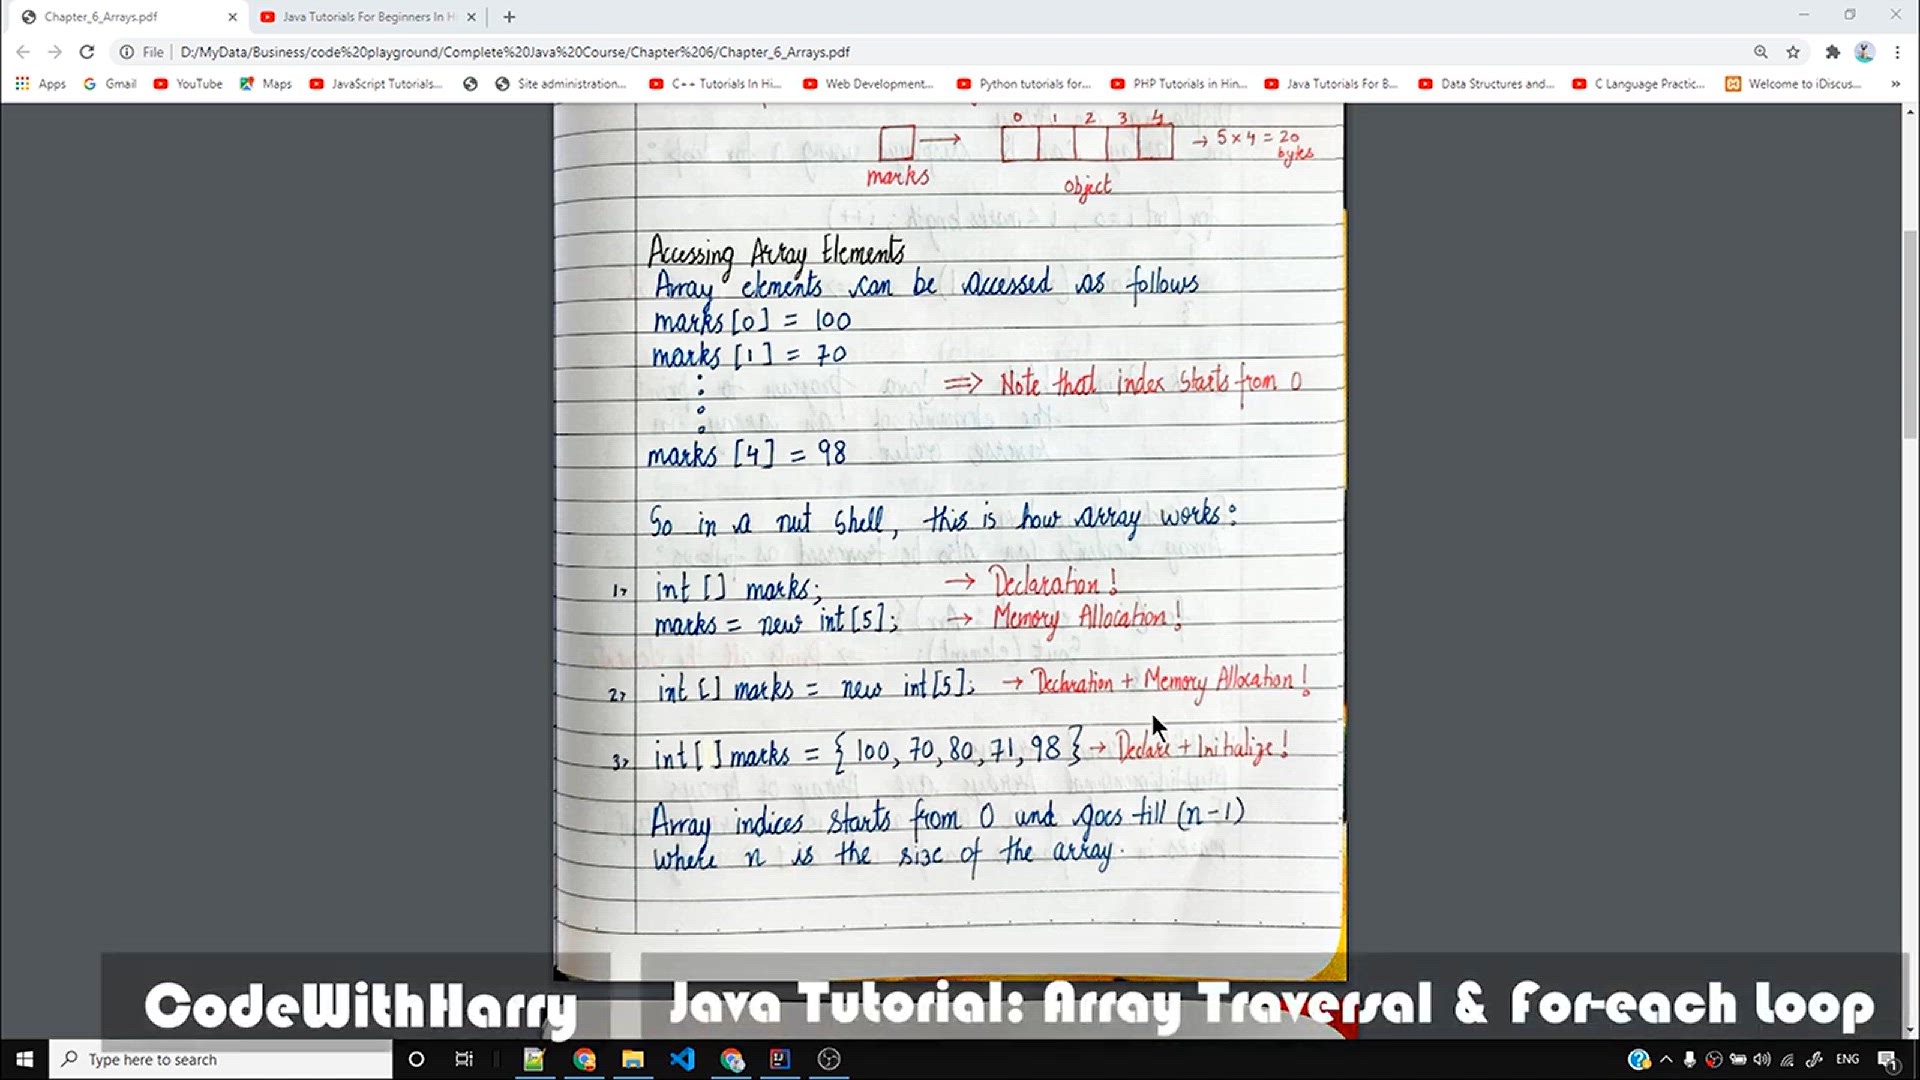 Chapter_6_Arrays.pdf
Java Tutorials For Beginners In H
File | D:/MyData/Business/code%20playground/Complete%20Java%20Course/Chapter%206/Chapter_6_Arrays.pdf
Apps Gmail YouTube Maps JavaScript Tutorials... Site administration... C++ Tutorials In Hi... Web Development... Python tutorials for... PHP Tutorials in Hin... Java Tutorials For B... Data Structures and... C Language Practic... Welcome to iDiscus... »
0 1 2 3 4
→ 5 x 4 = 20
bytes
marks
object
Accessing Array Elements
Array elements can be accessed as follows
marks [0] = 100
marks [1] = 70
⇒ Note that index starts from 0
marks [4] = 98
So in a nut shell, this is how array works:
1> int [] marks; → Declaration!
marks = new int [5]; → Memory Allocation!
2> int [] marks = new int [5]; → Declaration + Memory Allocation!
3> int [ ] marks = { 100, 70, 80, 71, 98 } → Declare + Initialize!
Array indices starts from 0 and goes till (n-1)
where n is the size of the array.
CodeWithHarry
Java Tutorial: Array Traversal & For-each Loop
Type here to search
ENG
1